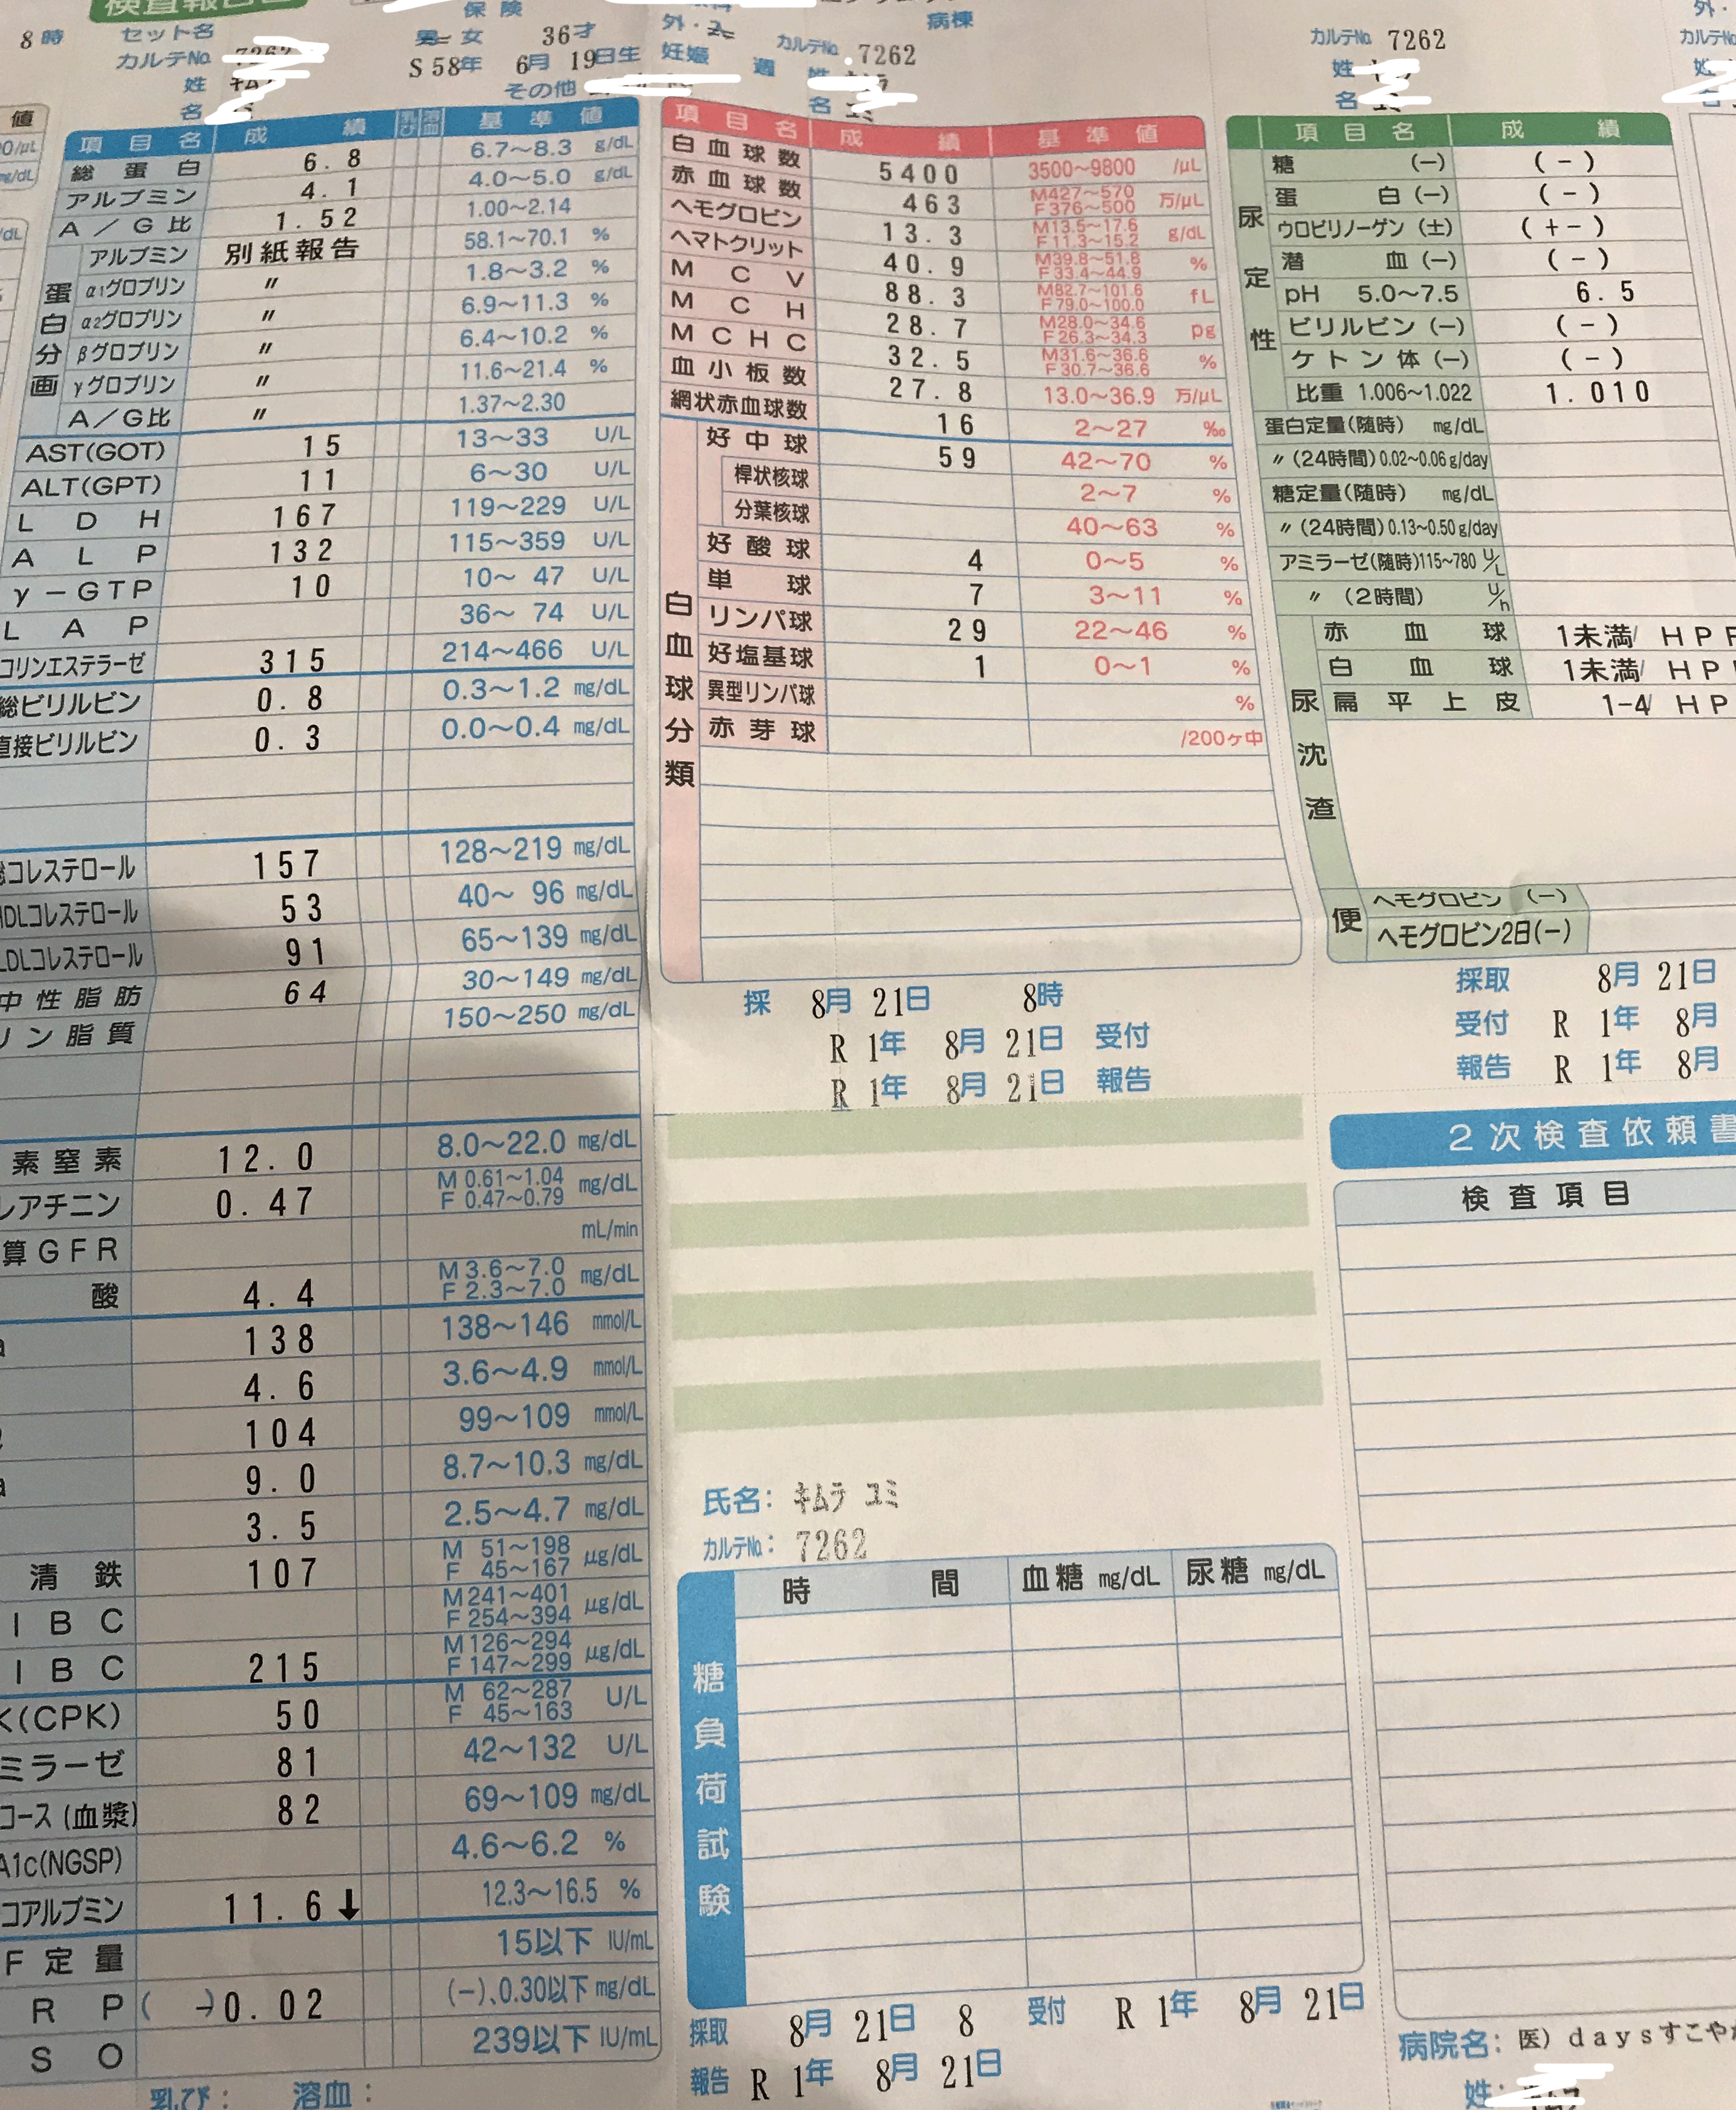 検査報告書
8時
セット名
カルテNo. 7262
姓
名
保険
男 女 36才
S 58年 6月 19日生
その他
外・
病棟
妊娠 週
カルテNo. 7262
姓
名 ユミ
カルテNo. 7262
姓
名
外・
カルテNo.
姓
名
値
項目名 成績 乳び 溶血 基準値
総蛋白 6.8 6.7〜8.3 g/dL
アルブミン 4.1 4.0〜5.0 g/dL
A/G比 1.52 1.00〜2.14
蛋白分画
アルブミン 別紙報告 58.1〜70.1 %
α1グロブリン 〃 1.8〜3.2 %
α2グロブリン 〃 6.9〜11.3 %
βグロブリン 〃 6.4〜10.2 %
γグロブリン 〃 11.6〜21.4 %
A/G比 〃 1.37〜2.30
AST(GOT) 15 13〜33 U/L
ALT(GPT) 11 6〜30 U/L
LDH 167 119〜229 U/L
ALP 132 115〜359 U/L
γ-GTP 10 10〜47 U/L
LAP 36〜74 U/L
コリンエステラーゼ 315 214〜466 U/L
総ビリルビン 0.8 0.3〜1.2 mg/dL
直接ビリルビン 0.3 0.0〜0.4 mg/dL
総コレステロール 157 128〜219 mg/dL
HDLコレステロール 53 40〜96 mg/dL
LDLコレステロール 91 65〜139 mg/dL
中性脂肪 64 30〜149 mg/dL
リン脂質 150〜250 mg/dL
素窒素 12.0 8.0〜22.0 mg/dL
レアチニン 0.47 M 0.61〜1.04 F 0.47〜0.79 mg/dL
算GFR mL/min
酸 4.4 M 3.6〜7.0 F 2.3〜7.0 mg/dL
a 138 138〜146 mmol/L
4.6 3.6〜4.9 mmol/L
104 99〜109 mmol/L
a 9.0 8.7〜10.3 mg/dL
3.5 2.5〜4.7 mg/dL
清鉄 107 M 51〜198 F 45〜167 μg/dL
IBC M 241〜401 F 254〜394 μg/dL
IBC 215 M 126〜294 F 147〜299 μg/dL
K(CPK) 50 M 62〜287 F 45〜163 U/L
ミラーゼ 81 42〜132 U/L
コース(血漿) 82 69〜109 mg/dL
A1c(NGSP) 4.6〜6.2 %
コアルブミン 11.6↓ 12.3〜16.5 %
F定量 15以下 IU/mL
RP (-)0.02 (−)、0.30以下 mg/dL
SO 239以下 IU/mL
乳び: 溶血:
項目名 成績 基準値
白血球数 5400 3500〜9800 /μL
赤血球数 463 M427〜570 F376〜500 万/μL
ヘモグロビン 13.3 M13.5〜17.6 F11.3〜15.2 g/dL
ヘマトクリット 40.9 M39.8〜51.8 F33.4〜44.9 %
MCV 88.3 M82.7〜101.6 F79.0〜100.0 fL
MCH 28.7 M28.0〜34.6 F26.3〜34.3 pg
MCHC 32.5 M31.6〜36.6 F30.7〜36.6 %
血小板数 27.8 13.0〜36.9 万/μL
網状赤血球数 16 2〜27 ‰
白血球分類
好中球 59 42〜70 %
桿状核球 2〜7 %
分葉核球 40〜63 %
好酸球 4 0〜5 %
単球 7 3〜11 %
リンパ球 29 22〜46 %
好塩基球 1 0〜1 %
異型リンパ球 %
赤芽球 /200ヶ中
採 8月 21日 8時
R 1年 8月 21日 受付
R 1年 8月 21日 報告
氏名: キムラ ユミ
カルテNo.: 7262
糖負荷試験
時間 血糖 mg/dL 尿糖 mg/dL
採取 8月 21日 8 受付 R 1年 8月 21日
報告 R 1年 8月 21日
項目名 成績
尿定性
糖 (−) (-)
蛋白 (−) (-)
ウロビリノーゲン (±) (+-)
潜血 (−) (-)
pH 5.0〜7.5 6.5
ビリルビン (−) (-)
ケトン体 (−) (-)
比重 1.006〜1.022 1.010
蛋白定量(随時) mg/dL
〃 (24時間) 0.02〜0.06 g/day
糖定量(随時) mg/dL
〃 (24時間) 0.13〜0.50 g/day
アミラーゼ(随時)115〜780 U/L
〃 (2時間) U/h
尿沈渣
赤血球 1未満/ HPF
白血球 1未満/ HP
扁平上皮 1-4/ HP
便
ヘモグロビン (−)
ヘモグロビン2日(−)
採取 8月 21日
受付 R 1年 8月
報告 R 1年 8月
2次検査依頼書
検査項目
病院名: 医) daysすこやか
姓: